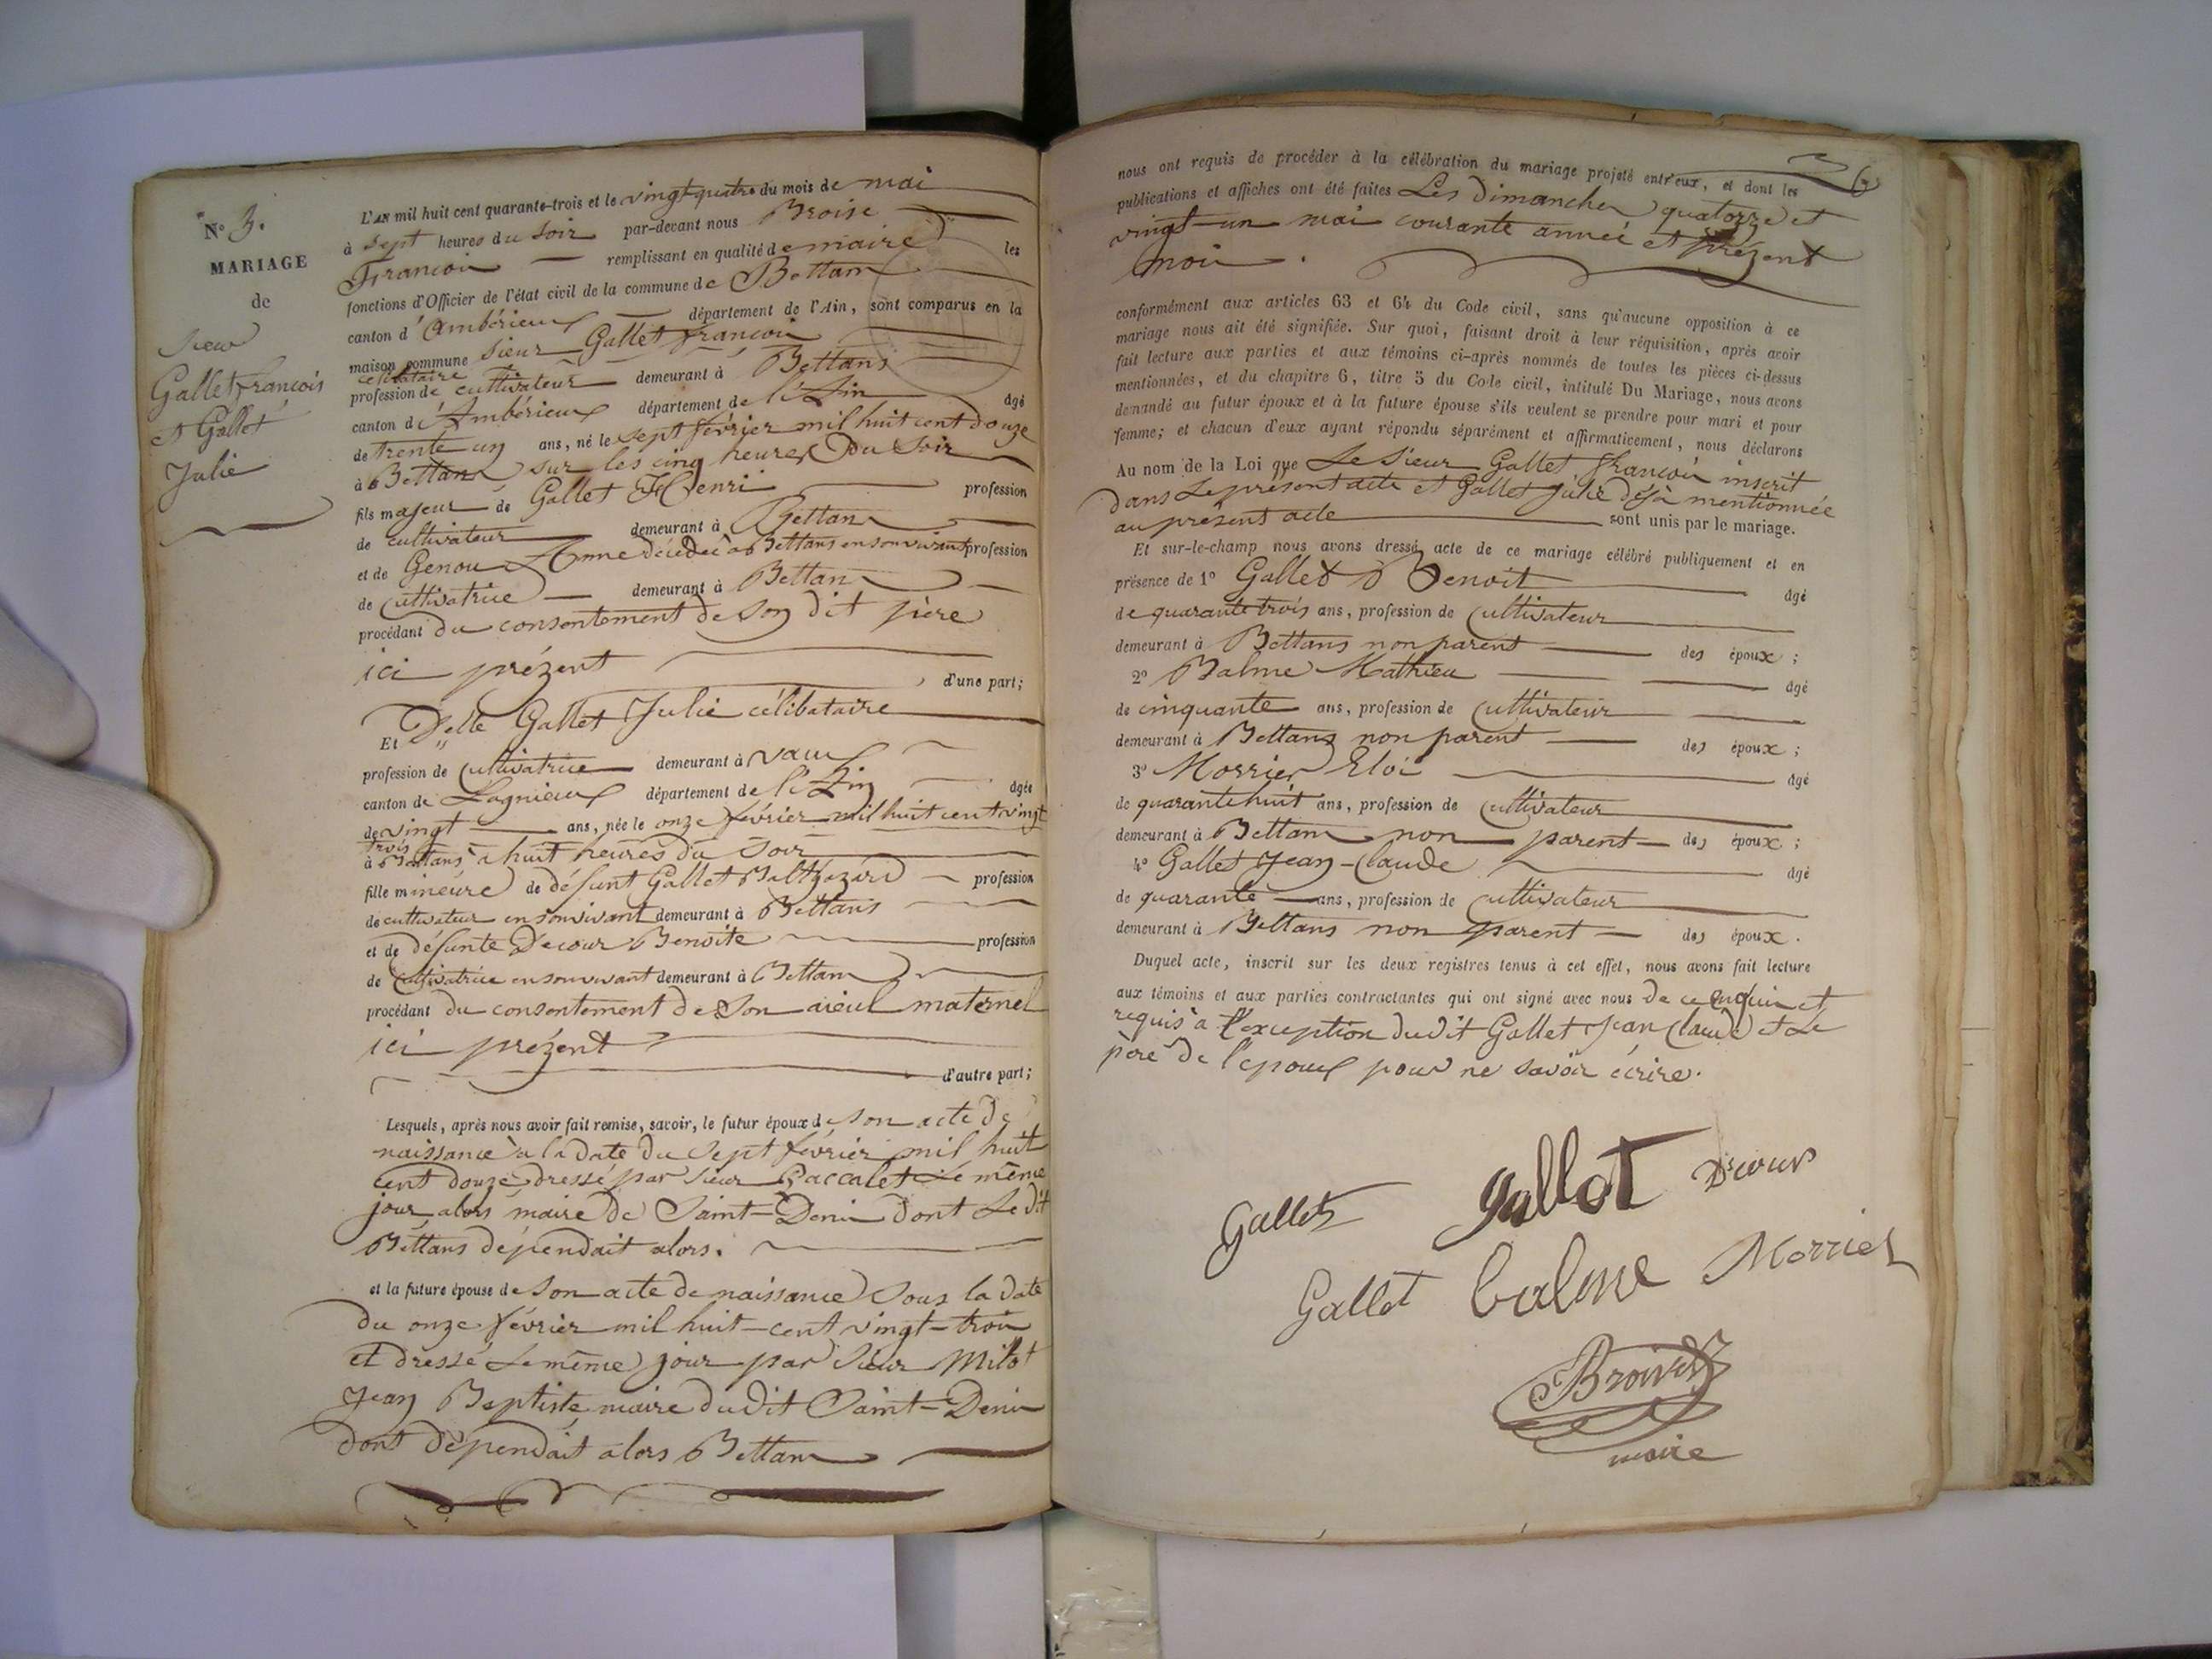 N° 3.
MARIAGE
de
Sieur
Gallet françois
et Gallet
Julie
L'AN mil huit cent quarante-trois et le vingt-quatre du mois de mai
à sept heures du soir par-devant nous Broise
François remplissant en qualité de maire les
fonctions d'Officier de l'état civil de la commune de Bettans
canton d'Ambérieux département de l'Ain, sont comparus en la
maison commune sieur Gallet françois
célibataire
profession de cultivateur demeurant à Bettans
canton d'Ambérieux département de l'Ain âgé
de trente un ans, né le sept février mil huit cent douze
à Bettans sur les cinq heures du soir
fils majeur de Gallet Henri profession
de cultivateur demeurant à Bettans
et de Genou Anne décédée à Bettans en son vivant profession
de cultivatrice demeurant à Bettans
procédant du consentement de son dit père
ici prézent
d'une part;
Et Delle Gallet Julie célibataire
profession de cultivatrice demeurant à Vaux
canton de Lagnieux département de l'Ain âgée
de vingt ans, née le onze février mil huit cent vingt
trois
à Bettans à huit heures du soir
fille mineure de défunt Gallet Balthazard profession
de cultivateur en son vivant demeurant à Bettans
et de défunte Decour Benoite profession
de cultivatrice en son vivant demeurant à Bettans
procédant du consentement de son aieul maternel
ici prézent
d'autre part;
Lesquels, après nous avoir fait remise, savoir, le futur époux de son acte de
naissance à la date du sept février mil huit
cent douze dressé par sieur Baccalet le même
jour alors maire de Saint-Denis dont le dit
Bettans dépendait alors.
et la future épouse de son acte de naissance sous la date
du onze février mil huit-cent vingt-trois
et dressé le même jour par sieur Milot
Jean Beptiste maire dudit Saint-Denis
dont dépendait alors Bettans
nous ont requis de procéder à la célébration du mariage projeté entr'eux, et dont les
publications et affiches ont été faites Les dimanches quatorze et
vingt-un mai courante année et prézent
mois.
conformément aux articles 63 et 64 du Code civil, sans qu'aucune opposition à ce
mariage nous ait été signifiée. Sur quoi, faisant droit à leur réquisition, après avoir
fait lecture aux parties et aux témoins ci-après nommés de toutes les pièces ci-dessus
mentionnées, et du chapitre 6, titre 5 du Code civil, intitulé Du Mariage, nous avons
demandé au futur époux et à la future épouse s'ils veulent se prendre pour mari et pour
femme; et chacun d'eux ayant répondu séparément et affirmativement, nous déclarons
Au nom de la Loi que Le sieur Gallet françois inscrit
dans le présent acte et Gallet Julie déjà mentionnée
au présent acte sont unis par le mariage.
Et sur-le-champ nous avons dressé acte de ce mariage célébré publiquement et en
présence de 1° Gallet Benoit âgé
de quarante trois ans, profession de cultivateur
demeurant à Bettans non parent des époux;
2° Balme Mathieu âgé
de cinquante ans, profession de cultivateur
demeurant à Bettans non parent des époux;
3° Morrier Eloi âgé
de quarante huit ans, profession de cultivateur
demeurant à Bettans non parent des époux;
4° Gallet Jean-Claude âgé
de quarante ans, profession de cultivateur
demeurant à Bettans non parent des époux.
Duquel acte, inscrit sur les deux registres tenus à cet effet, nous avons fait lecture
aux témoins et aux parties contractantes qui ont signé avec nous de ce enquis et
requis à l'exception dudit Gallet Jean Claude et Le
père de l'époux pour ne savoir écrire.
Gallet gallot Decour
Gallet balme Morrier
Broise
maire